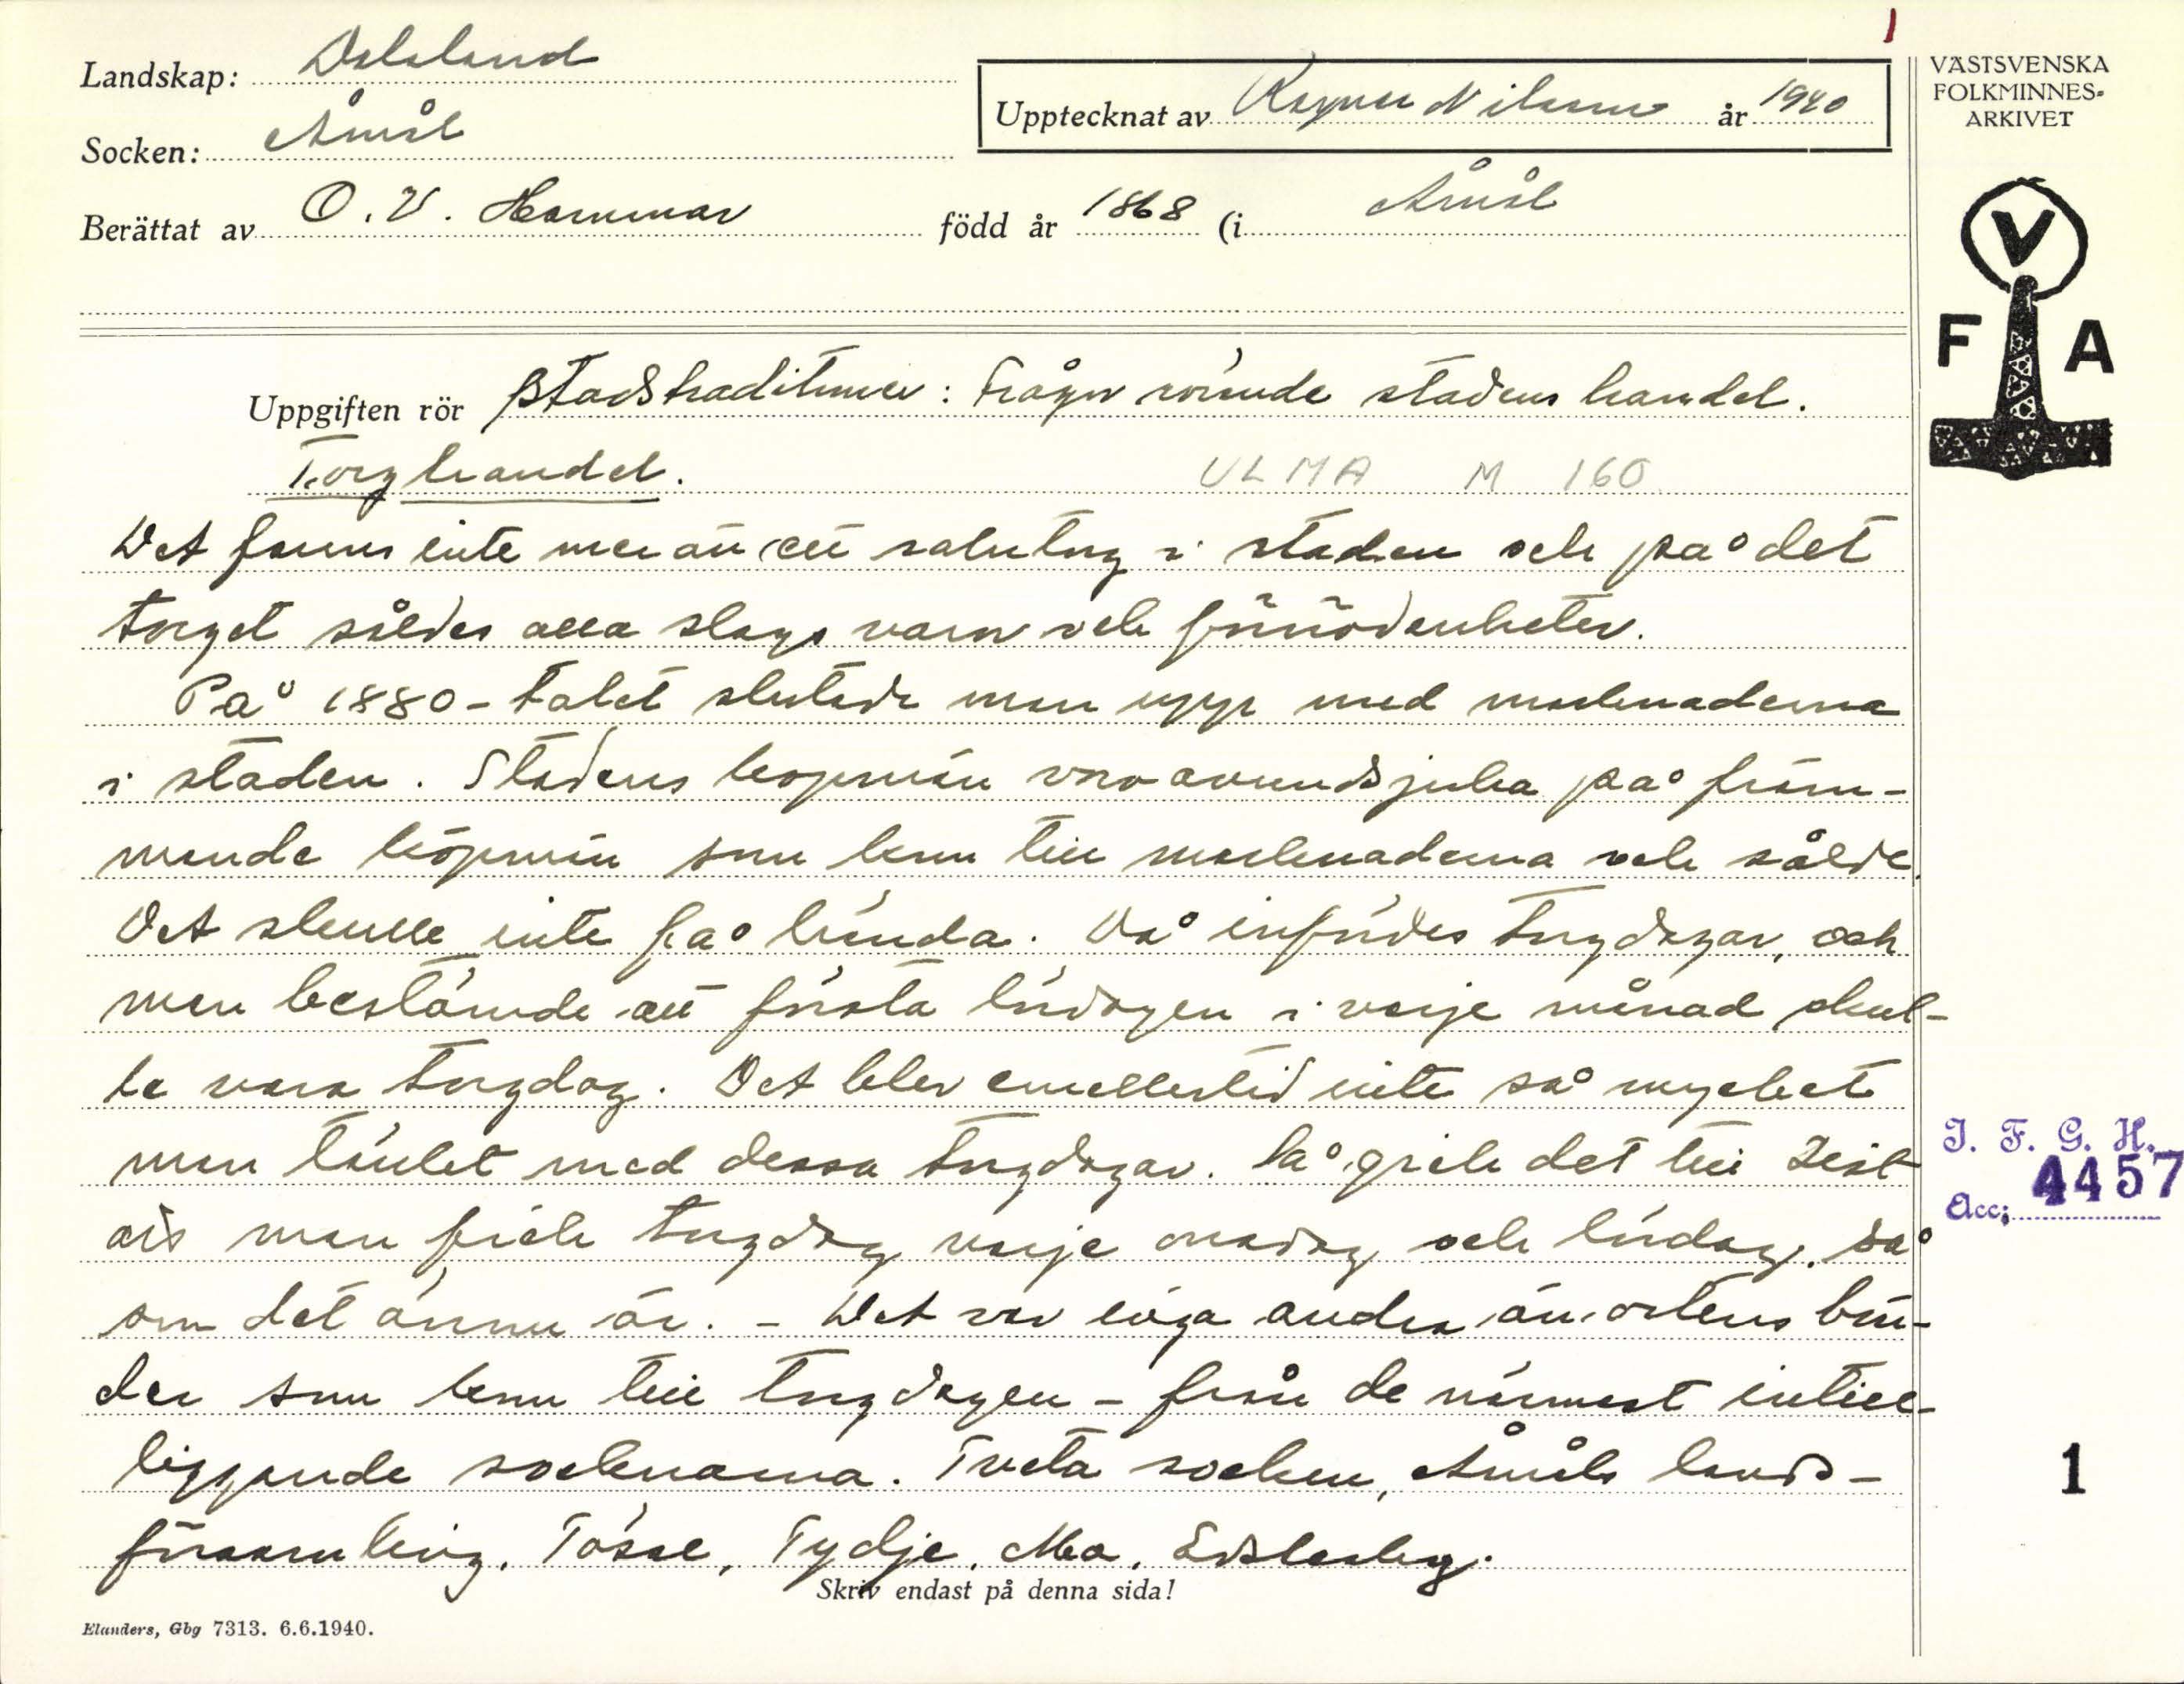 1
Landskap: Dalsland
Socken: Åmål
Upptecknat av Ragnar Nilsson år 1940
Berättat av O. V. Hammar född år 1868 (i Åmål
VÄSTSVENSKA
FOLKMINNES-
ARKIVET
V
F A
Uppgiften rör Stadstraditioner: Frågor rörande stadens handel.
Torghandel. ULMA M 160
Det fanns inte mer än ett salutorg i staden och på det
torget såldes alla slags varor och förnödenheter.
På 1880-talet slutade man upp med marknaderna
i staden. Stadens köpmän voro avundsjuka på främ-
mande köpmän som kom till marknaderna och sålde.
Det skulle inte få hända. Då infördes torgdagar, och
man bestämde att första lördagen i varje månad skul-
le vara torgdag. Det blev emellertid inte så mycket
man tänkt med dessa torgdagar. Så gick det till
att man fick torgdag varje onsdag och lördag, så
som det ännu är. - Det var inga andra än ortens bön-
der som kom till torgdagen - från de närmast intill-
liggande socknarna. Tveta socken, Åmåls lands-
församling, Tösse, Tydje, Mo, Edsleskog.
Skriv endast på denna sida!
Elanders, Gbg 7313. 6.6.1940.
I. F. G. H.
Acc: 4457
1